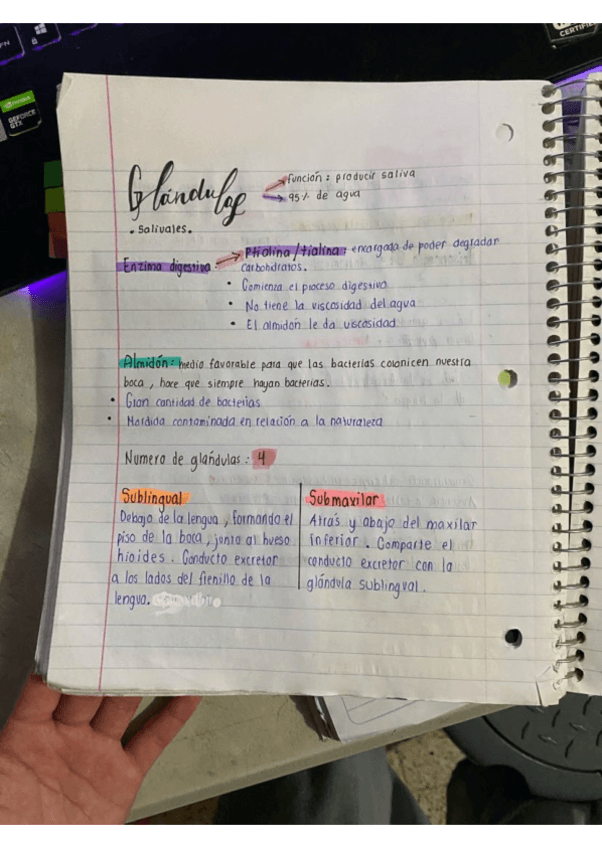 NVIDIA
GEFORCE
GTX
CERTIFIE
Glándulas
función: producir saliva
95% de agua
• salivales.
Enzima digestiva
Ptialina/tialina: encargada de poder degradar
carbohdratos.
• Comienza el proceso digestivo
• No tiene la viscosidad del agua
• El almidón le da viscosidad
Almidón: medio favorable para que las bacterias colonicen nuestra
boca, hace que siempre hayan bacterias.
• Gran cantidad de bacterias
• Mordida contaminada en relación a la naturaleza
Numero de glándulas: 4
Sublingual
Debajo de la lengua, formando el
piso de la boca, junto al hueso
hioides. Conducto excretor
a los lados del frenillo de la
lengua.
Submaxilar
Atrás y abajo del maxilar
inferior. Comparte el
conducto excretor con la
glándula sublingual.